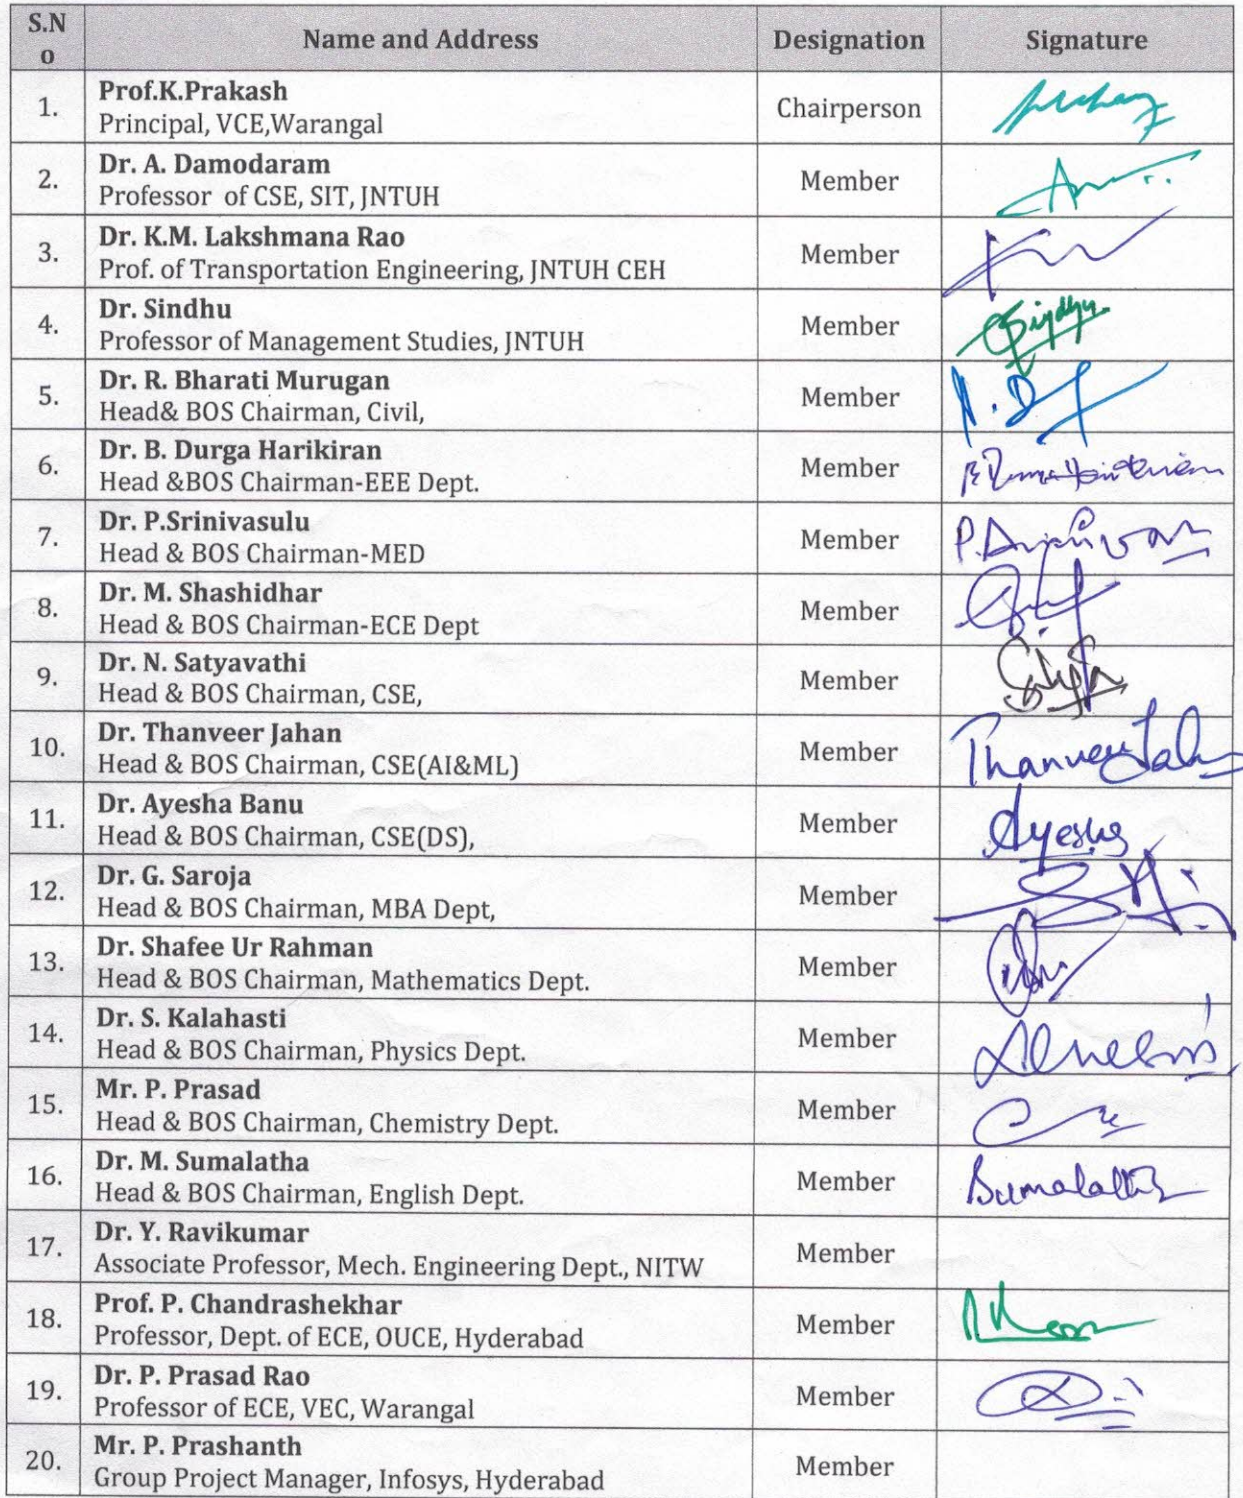 S.N
o
Name and Address
Designation
Signature
1.
Prof.K.Prakash
Principal, VCE,Warangal
Chairperson
2.
Dr. A. Damodaram
Professor of CSE, SIT, JNTUH
Member
3.
Dr. K.M. Lakshmana Rao
Prof. of Transportation Engineering, JNTUH CEH
Member
4.
Dr. Sindhu
Professor of Management Studies, JNTUH
Member
Sindhu
5.
Dr. R. Bharati Murugan
Head& BOS Chairman, Civil,
Member
6.
Dr. B. Durga Harikiran
Head &BOS Chairman-EEE Dept.
Member
7.
Dr. P.Srinivasulu
Head & BOS Chairman-MED
Member
8.
Dr. M. Shashidhar
Head & BOS Chairman-ECE Dept
Member
9.
Dr. N. Satyavathi
Head & BOS Chairman, CSE,
Member
10.
Dr. Thanveer Jahan
Head & BOS Chairman, CSE(AI&ML)
Member
Thanveer Jahan
11.
Dr. Ayesha Banu
Head & BOS Chairman, CSE(DS),
Member
Ayesha
12.
Dr. G. Saroja
Head & BOS Chairman, MBA Dept,
Member
13.
Dr. Shafee Ur Rahman
Head & BOS Chairman, Mathematics Dept.
Member
14.
Dr. S. Kalahasti
Head & BOS Chairman, Physics Dept.
Member
15.
Mr. P. Prasad
Head & BOS Chairman, Chemistry Dept.
Member
16.
Dr. M. Sumalatha
Head & BOS Chairman, English Dept.
Member
Sumalatha
17.
Dr. Y. Ravikumar
Associate Professor, Mech. Engineering Dept., NITW
Member
18.
Prof. P. Chandrashekhar
Professor, Dept. of ECE, OUCE, Hyderabad
Member
19.
Dr. P. Prasad Rao
Professor of ECE, VEC, Warangal
Member
20.
Mr. P. Prashanth
Group Project Manager, Infosys, Hyderabad
Member